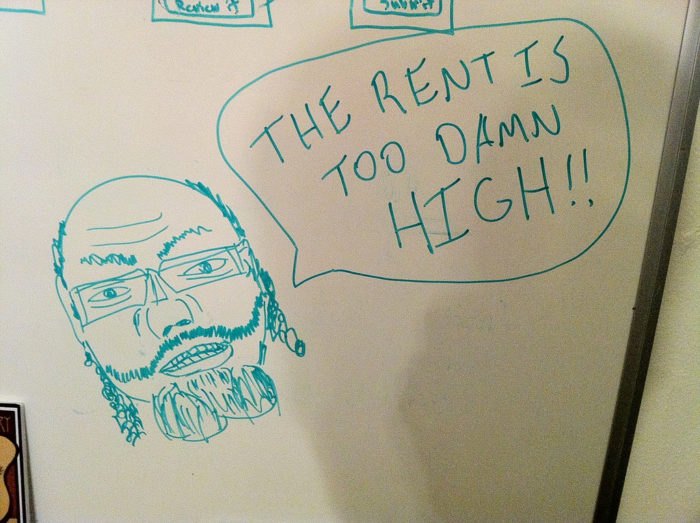 Review it
Submit
THE RENT IS
TOO DAMN
HIGH!!